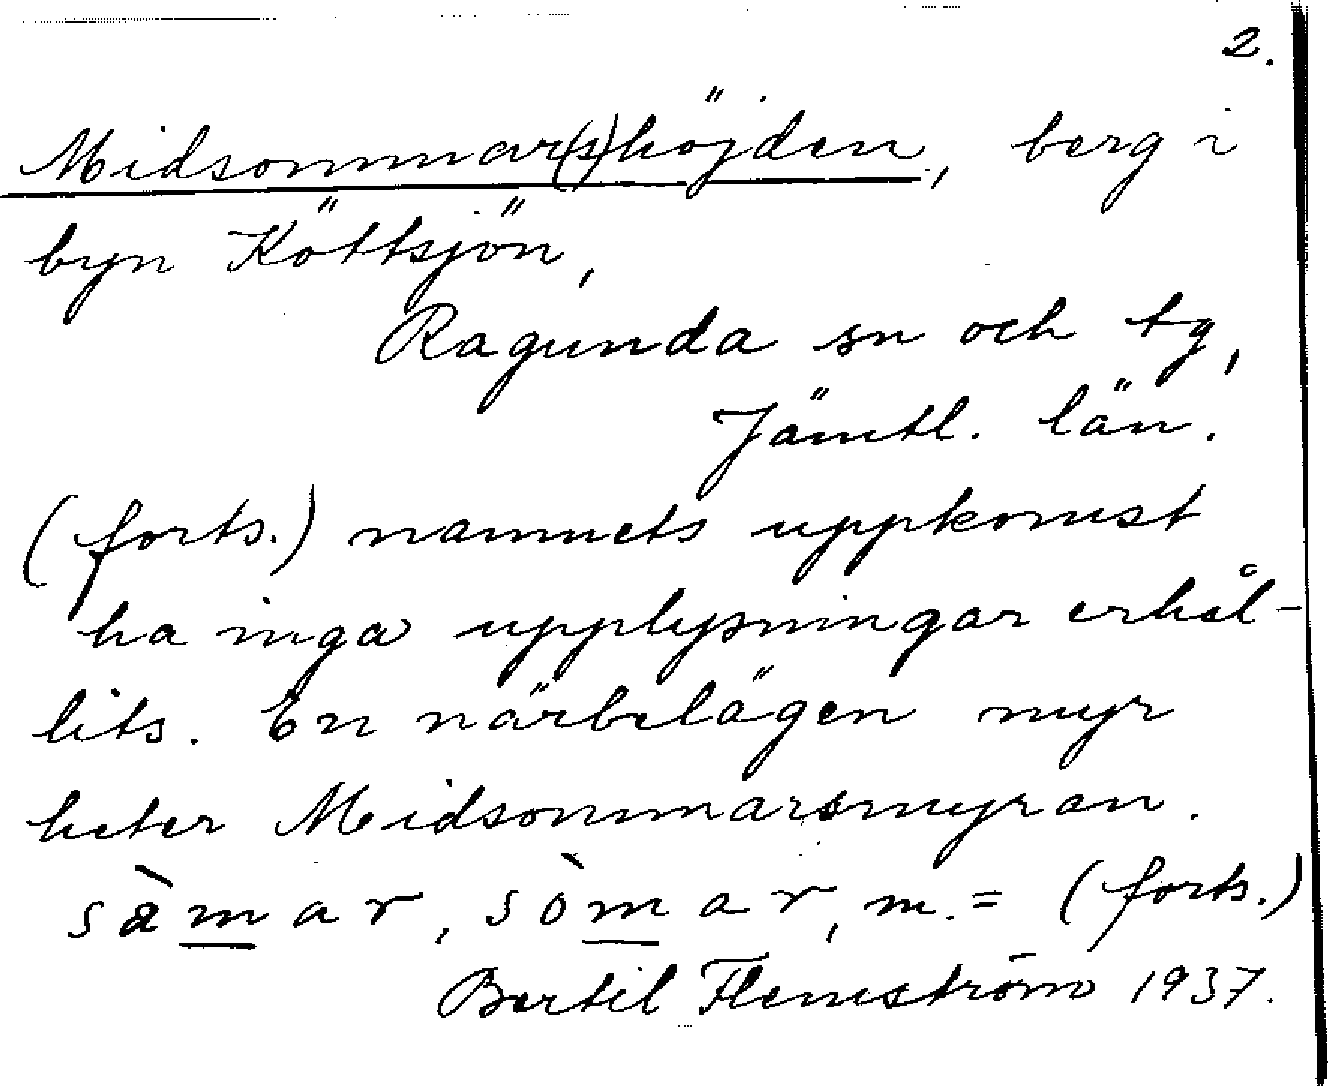 2.
Midsommar(s)höjden, berg i
byn Köttsjön,
Ragunda sn och tg,
Jämtl. län.
(forts.) namnets uppkomst
ha inga upplysningar erhål-
lits. En närbelägen myr
heter Midsommarsmyran.
sàmar, sòmar, m. = (forts.)
Bertil Flemström 1937.